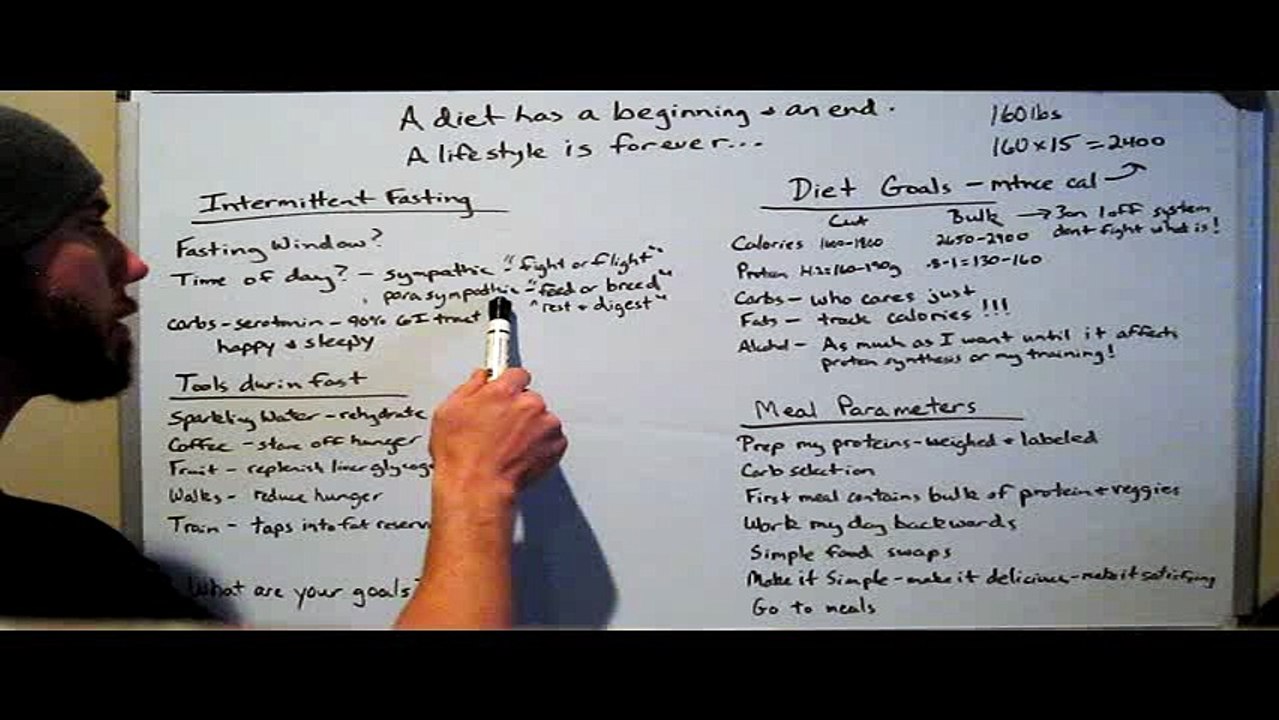 A diet has a beginning + an end.
A lifestyle is forever...
160lbs
160x15=2400
Intermittent Fasting
Fasting Window?
Time of day? - sympathic - "fight or flight"
parasympathic - "feed or breed"
"rest + digest"
carbs - serotonin - 90% GI tract
happy + sleepy
Tools durin fast
Sparkling Water - rehydrate
Coffee - stave off hunger
Fruit - replenish liver glycog
Walks - reduce hunger
Train - taps into fat reserv
What are your goals?
Diet Goals - mtnce cal
Cut Bulk → 3on 1off system
dont fight what is!
Calories 1600-1800 2650-2900
Protein =160-190g .8-1=130-160
Carbs - who cares just
Fats - track calories !!!
Alcohol - As much as I want until it affects
protein synthesis or my training!
Meal Parameters
Prep my proteins - weighed + labeled
Carb selection
First meal contains bulk of protein + veggies
Work my day backwards
Simple food swaps
Make it Simple - make it delicious - make it satisfying
Go to meals